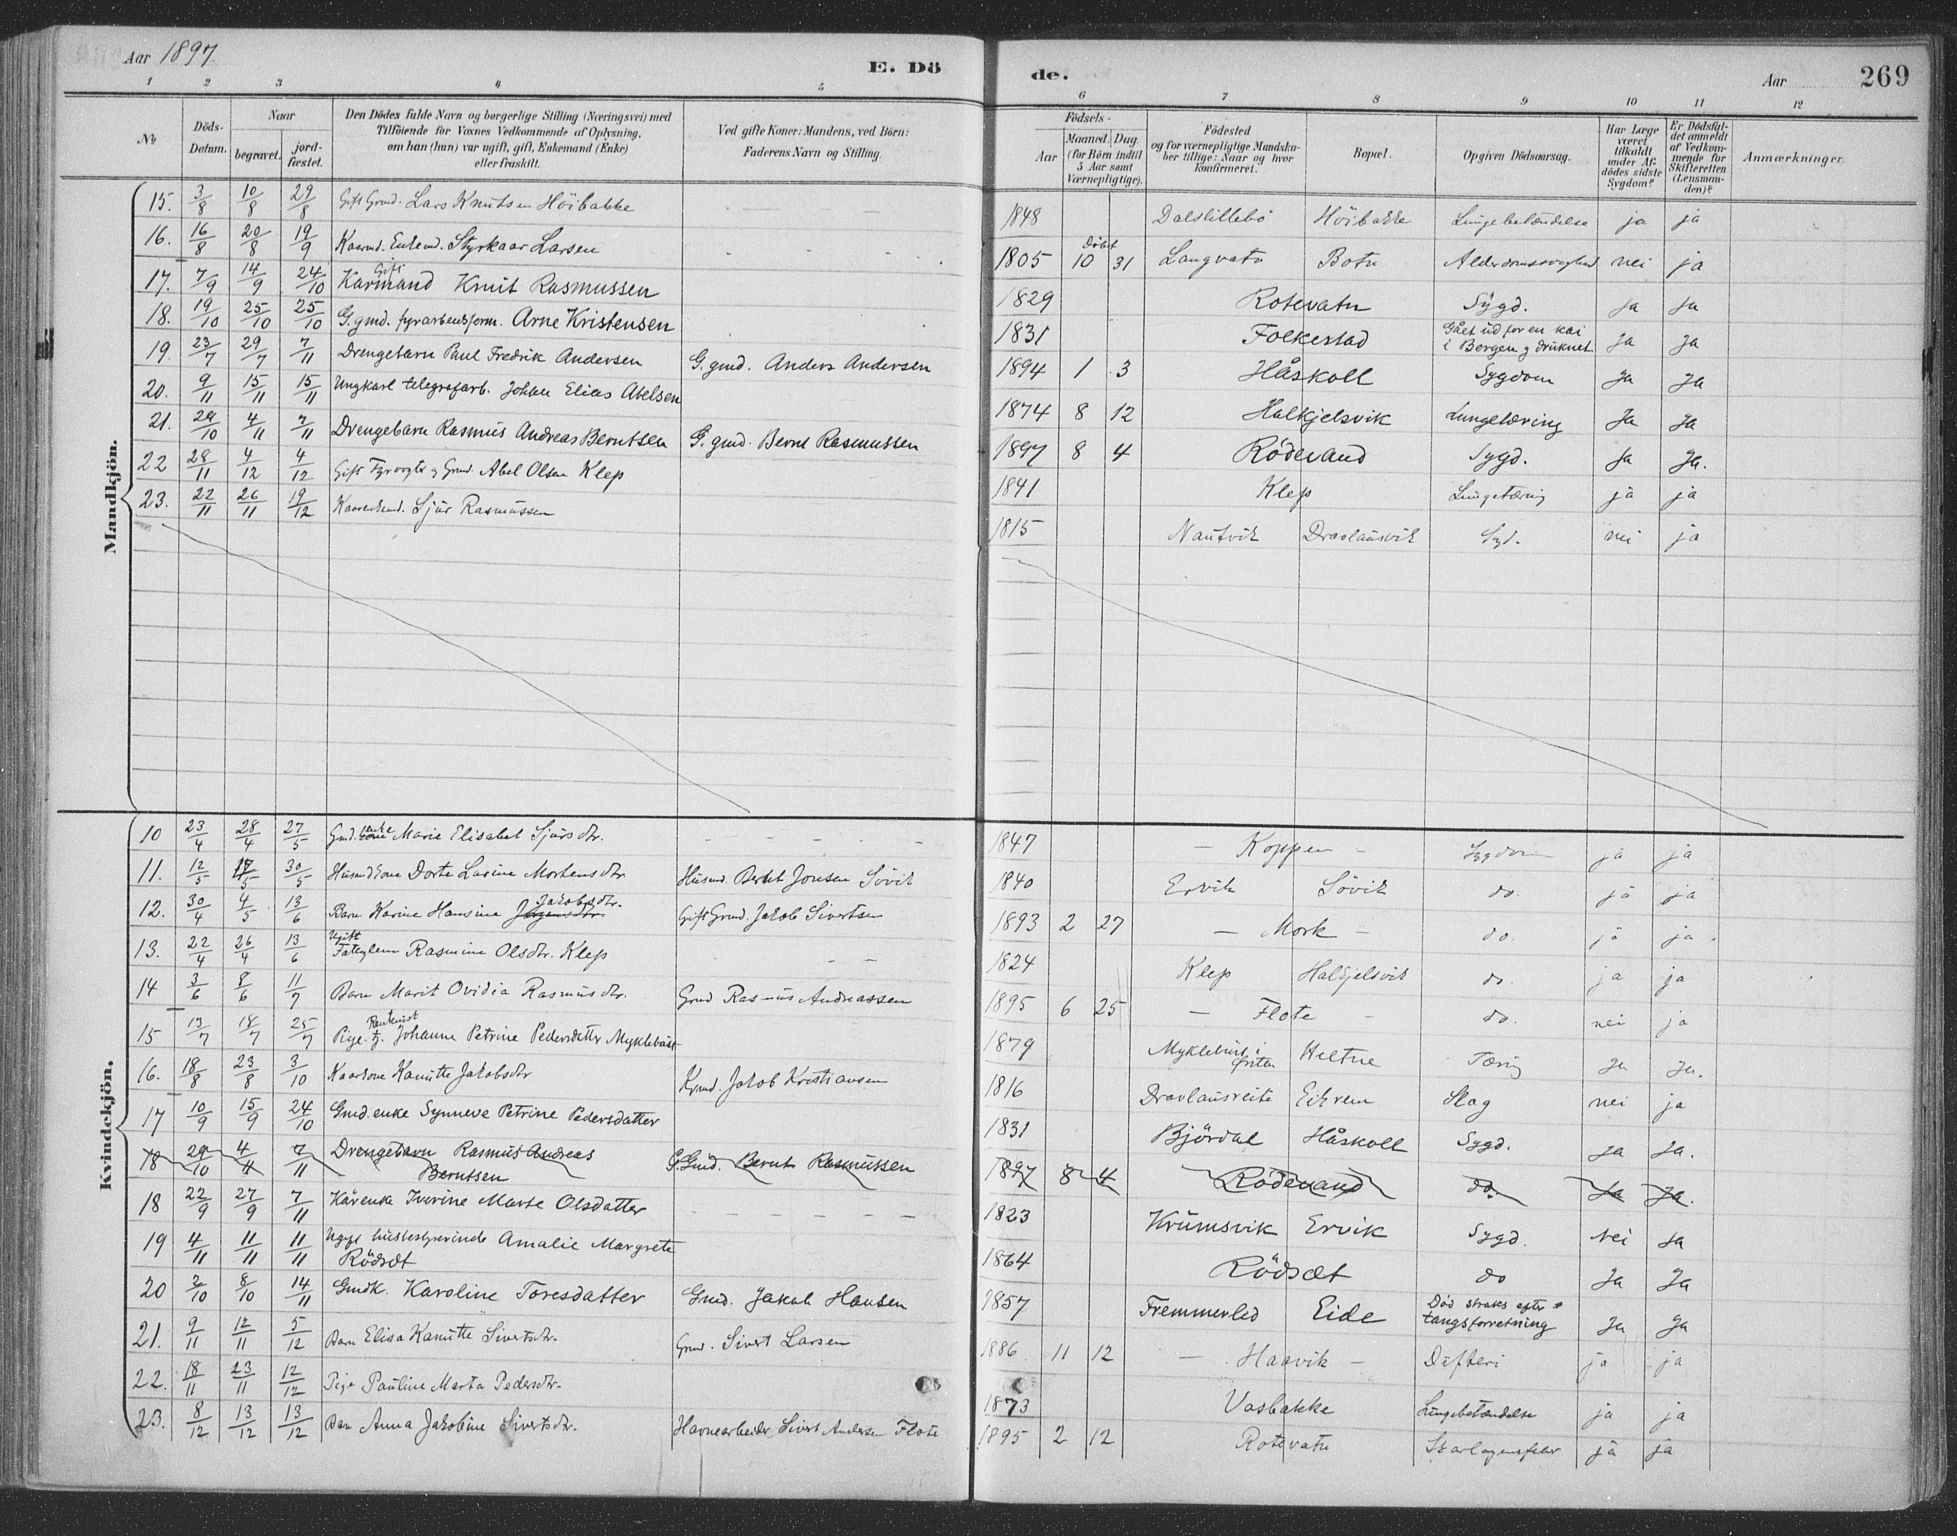 Aar 1897 E. Dö de. Aar 269
1 2 3 4 5 6 7 8 9 10 11 12
No Döds-Datum. Naar begravet. jordfæstet. Den Dödes fulde Navn og borgerlige Stilling (Næringsvei) med Tilföiende for Voxnes Vedkommende af Oplysning, om han (hun) var ugift, gift, Enkemand (Enke) eller fraskilt. Ved gifte Koner: Mandens, ved Börn: Faderens Navn og Stilling. Födsels- Aar Maaned. Dag. (for Börn indtil 5 Aar samt Værnepligtige). Födested og for værnepligtige Mandskaber tillige: Naar og hvor konfirmeret. Bopæl. Opgiven Dödsaarsag. Har Læge været tilkaldt under Afdödes sidste Sygdom? Er Dödsfaldet anmeldt af Vedkommende for Skifteretten (Lensmanden)? Anmærkninger.
Mandkjön.
15. 3/8 10/8 29/8 Gift Grmd. Lars Knutsen Höibakke - - - 1848 Dalslillebö Höibakke Lungebetændelse ja ja
16. 16/8 20/8 19/9 Kaarmd. Enkem. Styrkaar Larsen - - - 1805 döbt 10 31 Langvatn Botn Alderdomssvaghed nei ja
17. 7/9 14/9 24/10 Gift Karmand Knut Rasmussen 1829 Rotevatn Sygd. Ja Ja
18. 19/10 25/10 25/10 G.gmd. fyrarbeidsform. Arne Kristensen 1831 Folkestad Gået ud for en kai i Bergen og druknet Ja Ja
19. 23/7 29/7 7/11 Drengebarn Paul Fredrik Andersen G.gmd. Anders Andersen 1894 1 3 Håskoll Sygdom Ja Ja
20. 9/11 15/11 15/11 Ungkarl telegrafarb. Johan Elias Abelsen 1874 8 12 Halkjelsvik Lungetæring Ja Ja
21. 29/10 4/11 7/11 Drengebarn Rasmus Andreas Berntsen G. gmd. Bernt Rasmussen 1897 8 4 Rödevand Sygd. Ja Ja.
22 28/11 4/12 4/12 Gift Fyrvogter og Grmd. Abel Olsen Klep 1841 Klep Lungetæring ja ja
23. 22/11 26/11 19/12 Kaarenkemd. Sjur Rasmussen 1815 Nautvik Dravlausvik Syd. nei ja
Kvindekjön.
10 23/4 28/4 27/5 Gmd. enke Marie Elisabet Sjursdtr. - - - - 1847 - Koppen - Sygdom ja ja
11. 12/5 17/5 30/5 Husmdkone Dorte Larine Mortensdtr. Husmd. Bertet Jonsen Sövik 1840 Ervik Sövik do. ja ja
12. 30/4 4/5 13/6 Barn Karine Hansine Jakobsdtr. Gift Grmd. Jakob Sivertsen 1893 2 27 - Mork - do. ja ja.
13. 22/4 26/4 13/6 Ugift Fatiglem Rasmine Olsdtr. Klep - - 1824 Klep Halkjelsvik do. ja ja
14 3/6 8/6 11/7 Barn Marit Ovidia Rasmusdtr. Grmd Rasmus Andreassen 1895 6 25 - Flote - do. nei ja
15 13/7 18/7 25/7 Pige Johanne Petrine Pedersdatter Myklebust 1879 Myklebust i Örsten Heltne Tæring Ja Ja.
16. 18/8 23/8 3/10 Kaarkone Kanutte Jakobsdtr Krmd. Jakob Kristiansen 1816 Dravlausreite Eikrem Slag nei ja
17 10/9 15/9 24/10 Gmd. enke Synneve Petrine Pedersdatter 1831 Björdal Håskoll Sygd. Ja Ja.
18 29/10 4/11 7/11 Drengebarn Rasmus Andreas Berntsen G. Gmd. Bernt Rasmussen 1897 8 4 Rödevand do. Ja Ja.
18 22/9 27/9 7/11 Kårenke Iverine Marte Olsdatter - - - - - 1823 Krumsvik Ervik Sygd. Nei Ja
19 4/11 11/11 11/11 Ugift husbestyrerinde Amalie Margrete Rödsæt 1864 Rödsæt do Ja Ja
20 2/10 8/10 14/11 Gmdk. Karoline Toresdatter Gmd. Jakob Hansen 1857 Fremmerlid Eide Död straks efter tangsforretning Ja Ja
21. 9/11 12/11 5/12 Barn Elisa Kanutte Sivertsdtr. Grmd. Sivert Larsen 1886 11 12 - Haavik - Difteri ja ja
22. 18/11 23/11 12/12 Pige Pauline Marta Pedersdtr. 1873 Vasbakke Lungebetændelse ja ja
23. 8/12 13/12 13/12 Barn Anna Jakobine Sivertsdtr. Havnearbeider Sivert Andersen Flote 1895 2 12 Rotevatn Skarlagensfeber ja ja